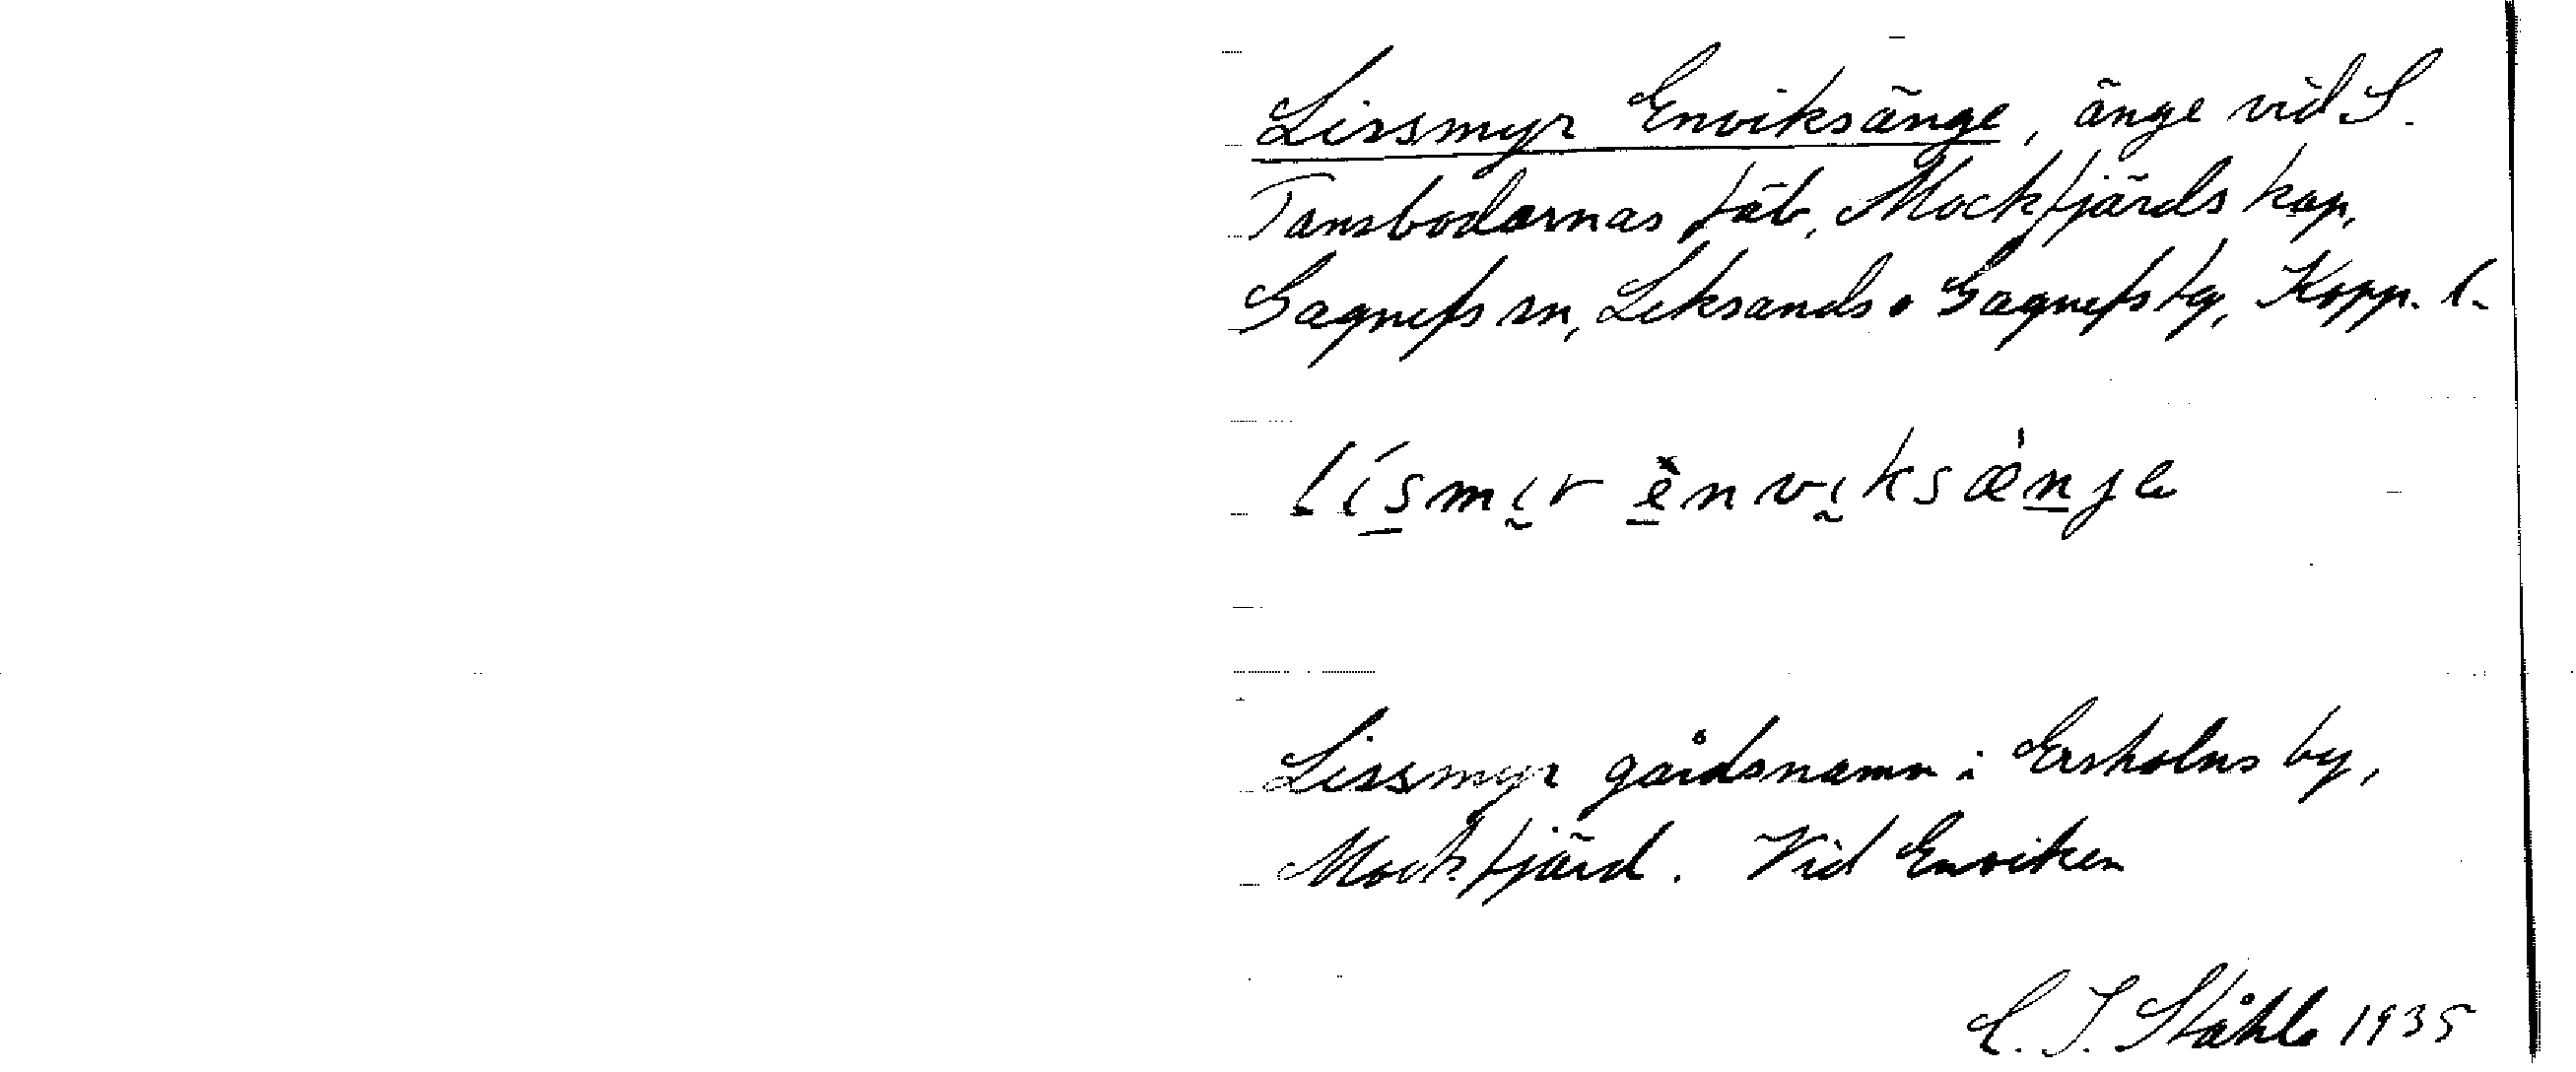 Lissmyr Enviksänge, änge vid S.
Tansbodarnas fäb, Mockfjärds kap,
Gagnefs sn, Leksands o Gagnefs tg, Kopp. l.
lísmir ènviksænje
Lissmyr gårdsnamn i Ersholns by,
Mockfjärd. Vid Enviken
C. I. Ståhle 1935